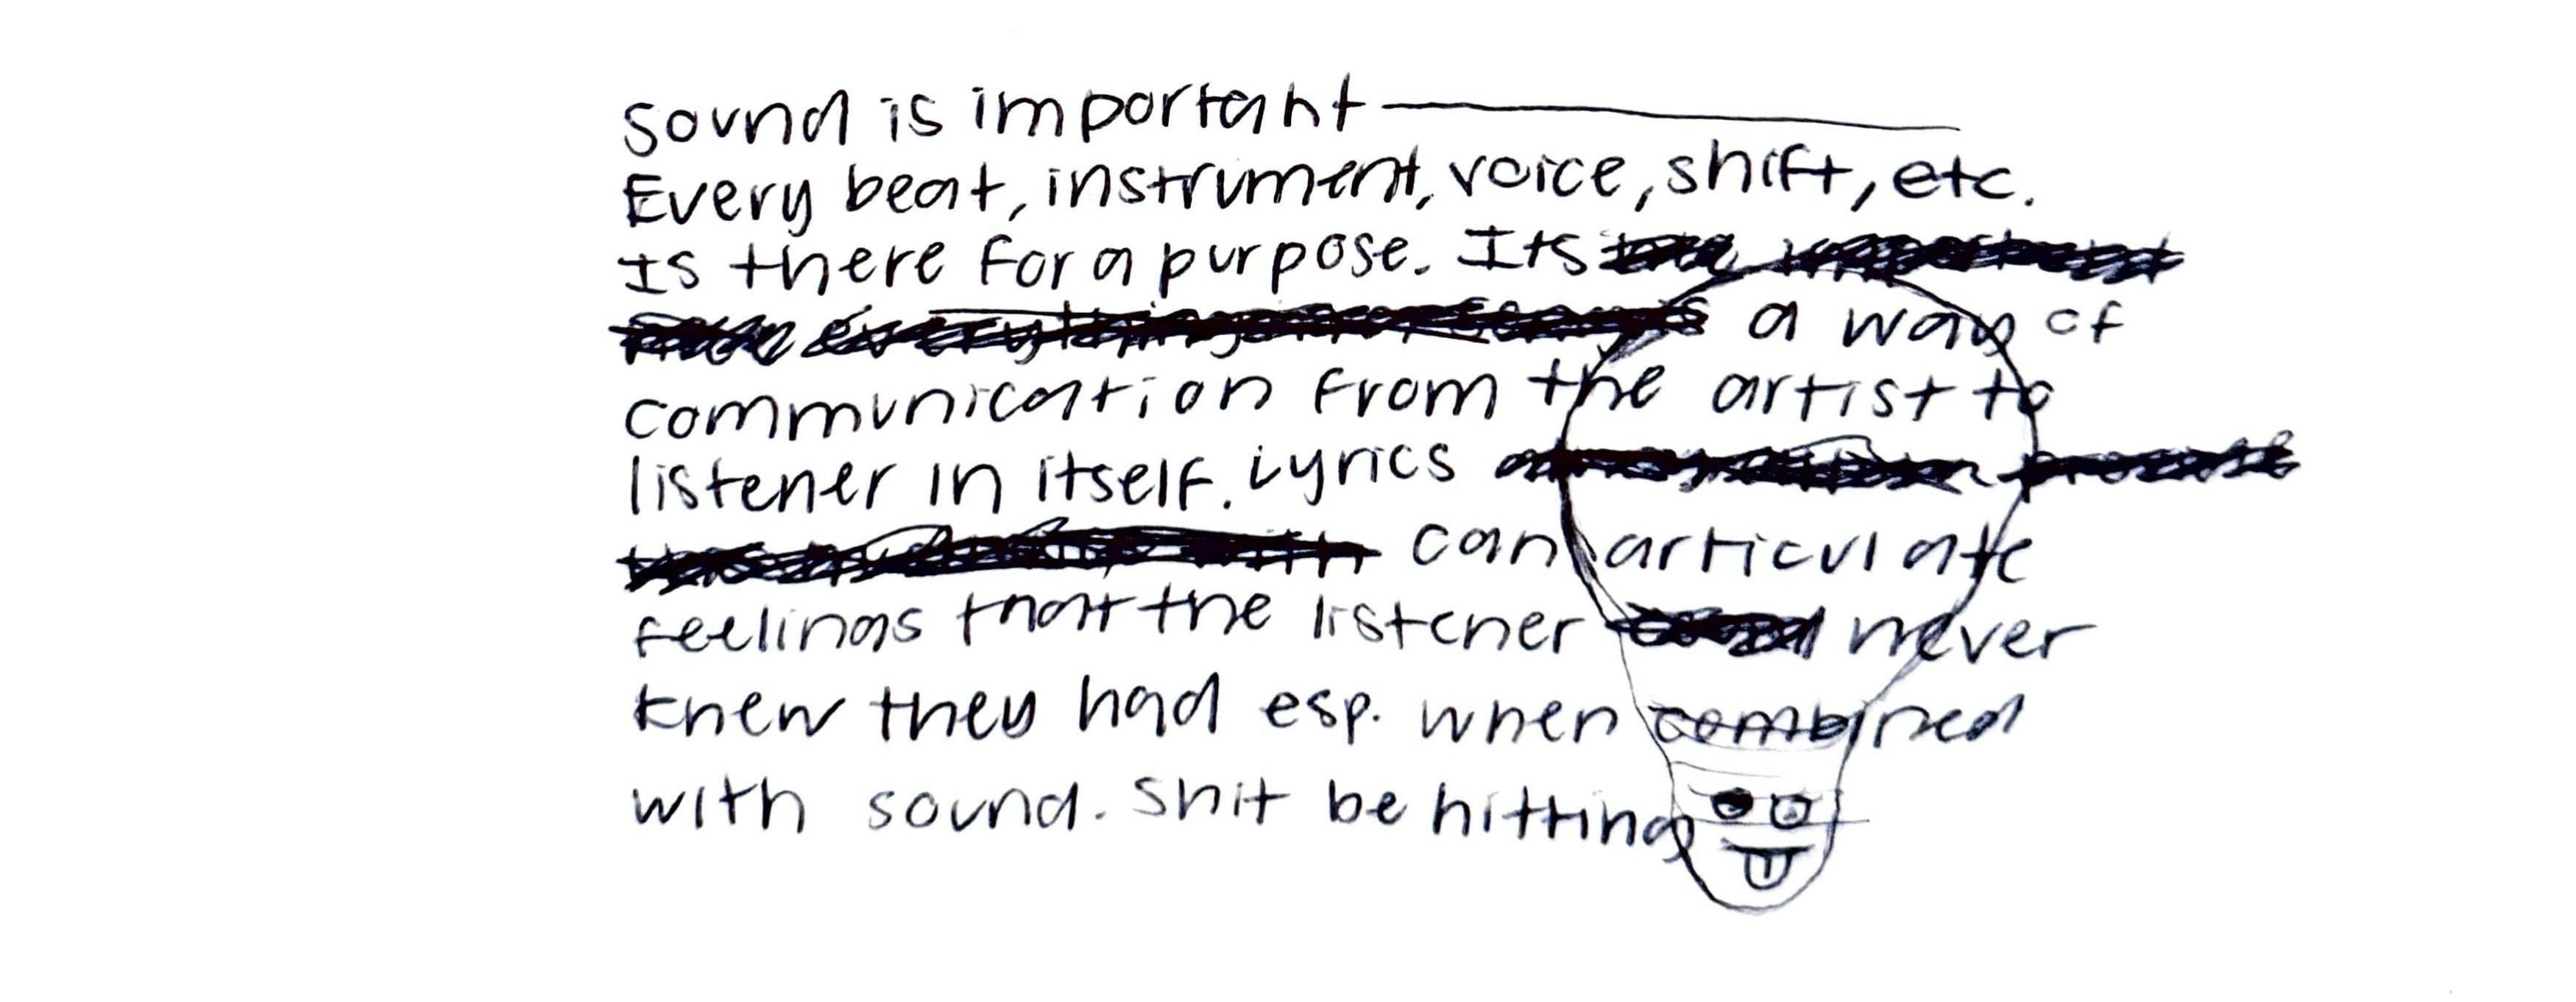 Sound is important
Every beat, instrument, voice, shift, etc.
Is there for a purpose. Its
everything a way of
communication from the artist to
listener in itself. Lyrics
can articulate
feelings that the listener never
knew they had esp. when combined
with sound. Shit be hitting